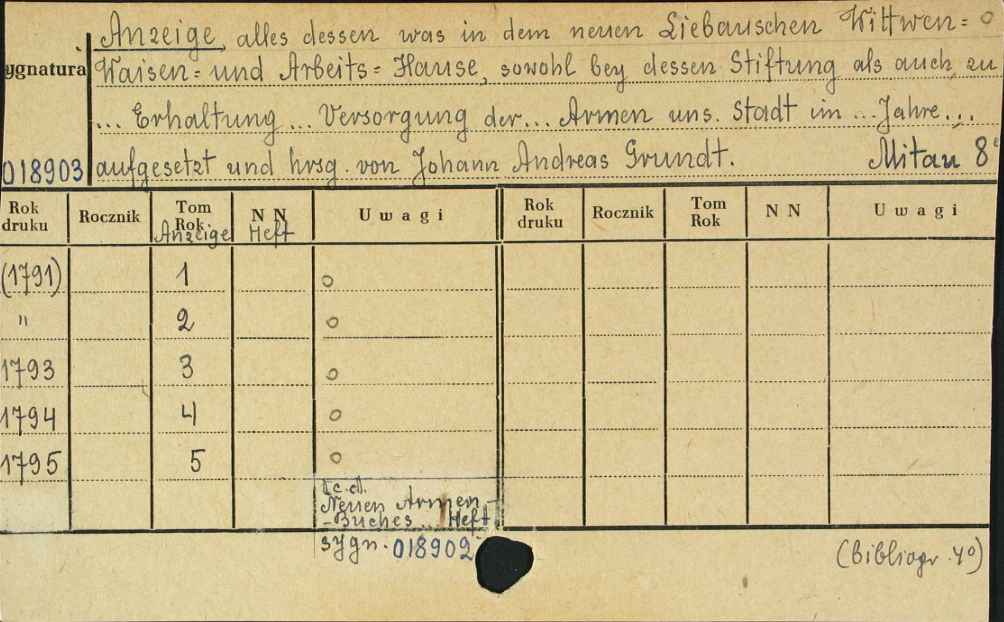 Anzeige, alles dessen was in dem neuen Liebauschen Wittwen= o
ygnatura Waisen= und Arbeits=Hause, sowohl bey dessen Stiftung als auch zu
... Erhaltung ... Versorgung der... Armen uns. Stadt im ... Jahre...
018903 aufgesetzt und hrsg. von Johann Andreas Grundt. Mitau 8°
Rok druku Rocznik Tom Rok N N Uwagi Rok druku Rocznik Tom Rok N N Uwagi
Anzeige Heft
(1791) 1 o
" 2 o
1793 3 o
1794 4 o
1795 5 o
Neuen Armen-
-Buches... Heft
sygn. 018902
(Bibliogr. 4°)